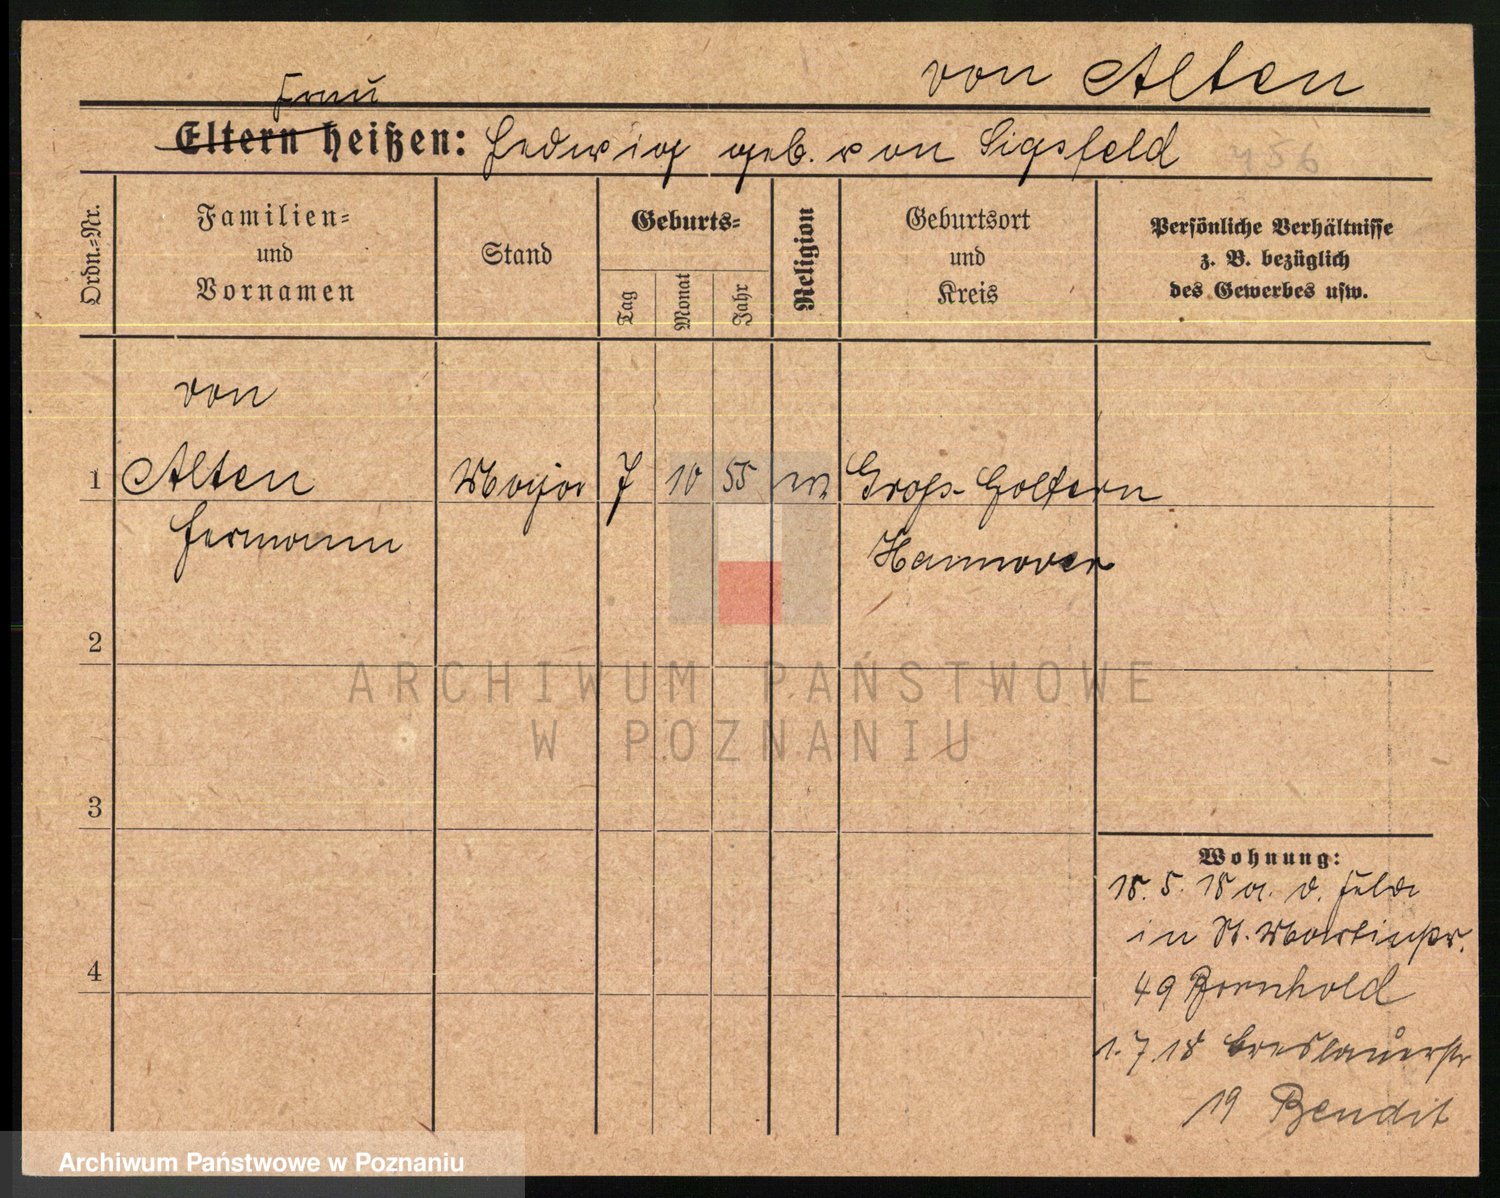 von Alten
Frau
Eltern heißen: Hedwig geb. von Sigsfeld
456
Ordn.=Nr.
Familien=
und
Vornamen
Stand
Geburts=
Tag
Monat
Jahr
Religion
Geburtsort
und
Kreis
Persönliche Verhältnisse
z. B. bezüglich
des Gewerbes usw.
von
1 Alten Major 7 10 55 Groß-Goltern
Hermann Hannover
2
ARCHIWUM PAŃSTWOWE
W POZNANIU
3
Wohnung:
18. 5. 18 a. d. Felde
in St. Martinstr.
4
49 Bornhold
1. 7. 18 Breslauerstr
19 Bendit
Archiwum Państwowe w Poznaniu